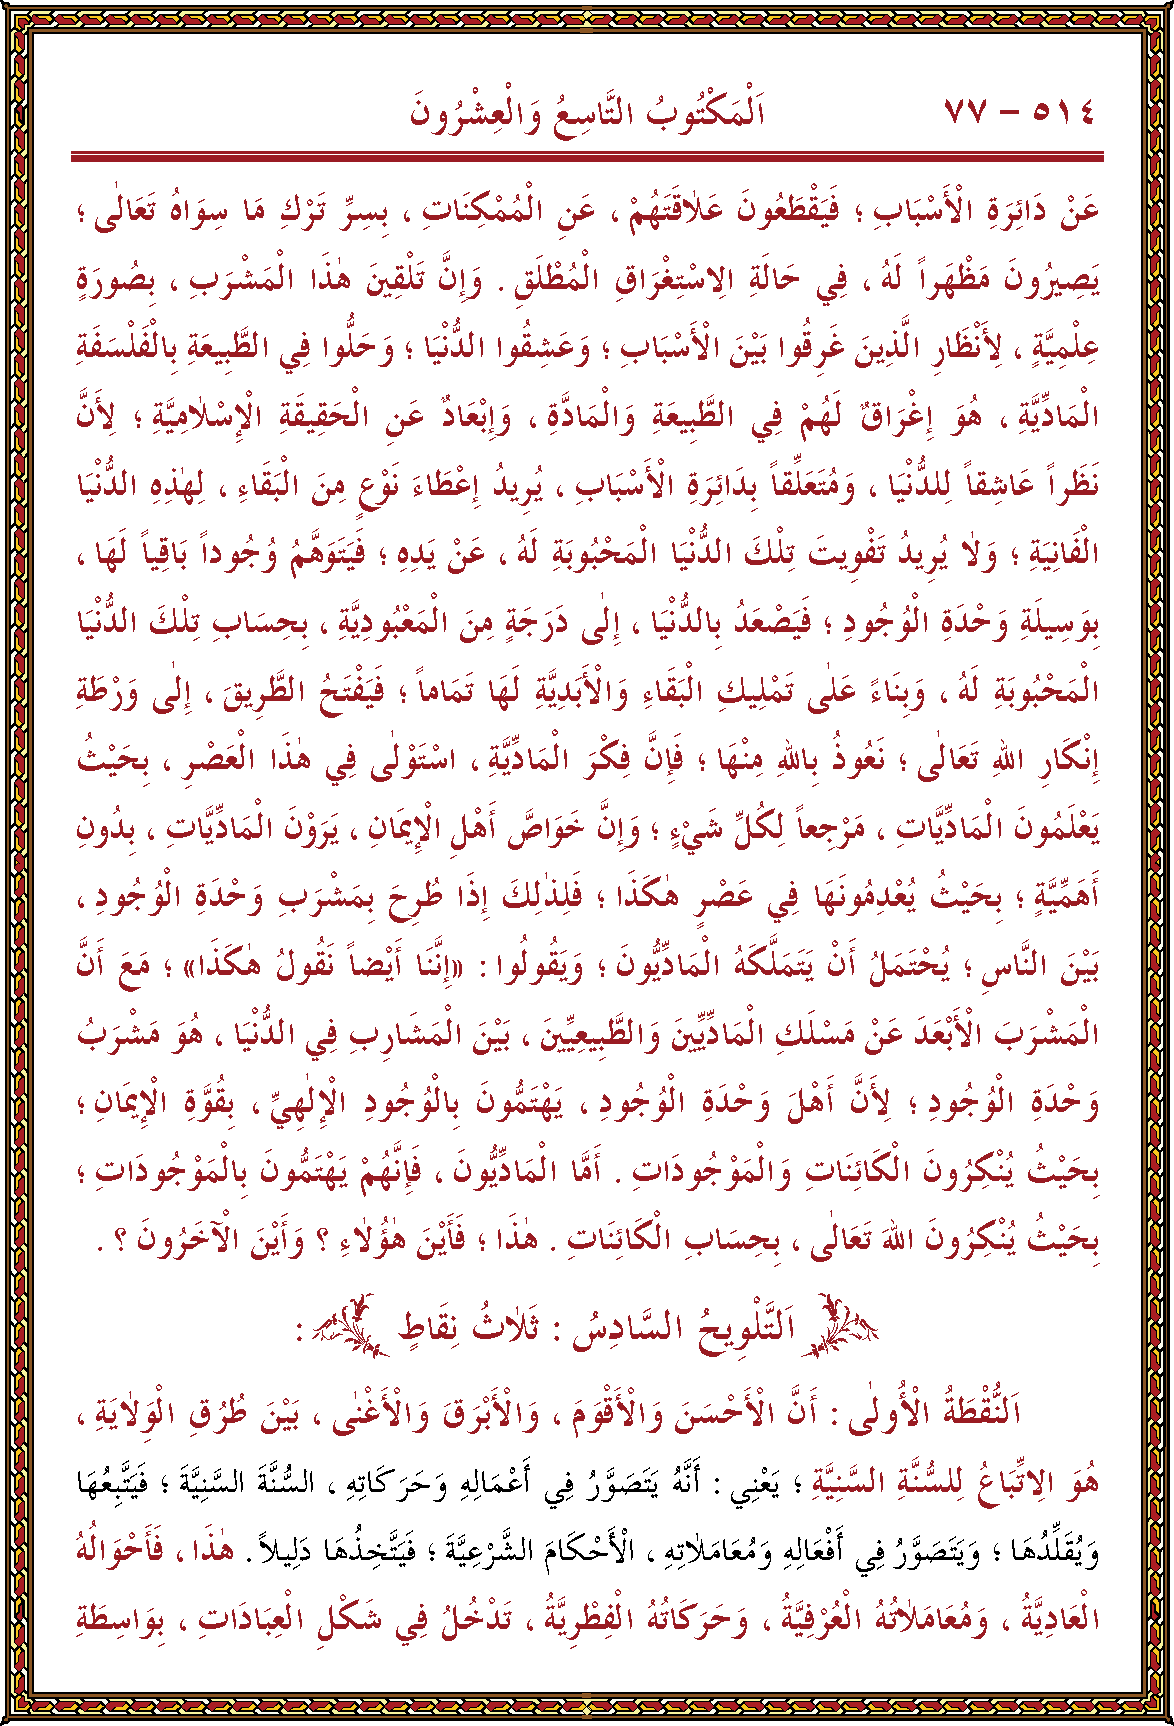 ٥١٤ – ٧٧ اَلْمَكْتُوبُ التَّاسِعُ وَالْعِشْرُونَ
عَنْ دَائِرَةِ الْأَسْبَابِ ؛ فَيَقْطَعُونَ عَلَاقَتَهُمْ ، عَنِ الْمُمْكِنَاتِ ، بِسِرِّ تَرْكِ مَا سِوَاهُ تَعَالٰى ؛
يَصِيرُونَ مَظْهَراً لَهُ ، فِي حَالَةِ الاِسْتِغْرَاقِ الْمُطْلَقِ . وَإِنَّ تَلْقِينَ هٰذَا الْمَشْرَبِ ، بِصُورَةٍ
عِلْمِيَّةٍ ، لِأَنْظَارِ الَّذِينَ غَرِقُوا بَيْنَ الْأَسْبَابِ ؛ وَعَشِقُوا الدُّنْيَا ؛ وَحَلُّوا فِي الطَّبِيعَةِ بِالْفَلْسَفَةِ
الْمَادِّيَّةِ ، هُوَ إِغْرَاقٌ لَهُمْ فِي الطَّبِيعَةِ وَالْمَادَّةِ ، وَإِبْعَادٌ عَنِ الْحَقِيقَةِ الْإِسْلَامِيَّةِ ؛ لِأَنَّ
نَظَراً عَاشِقاً لِلدُّنْيَا ، وَمُتَعَلِّقاً بِدَائِرَةِ الْأَسْبَابِ ، يُرِيدُ إِعْطَاءَ نَوْعٍ مِنَ الْبَقَاءِ ، لِهٰذِهِ الدُّنْيَا
الْفَانِيَةِ ؛ وَلَا يُرِيدُ تَفْوِيتَ تِلْكَ الدُّنْيَا الْمَحْبُوبَةِ لَهُ ، عَنْ يَدِهِ ؛ فَيَتَوَهَّمُ وُجُوداً بَاقِياً لَهَا ،
بِوَسِيلَةِ وَحْدَةِ الْوُجُودِ ؛ فَيَصْعَدُ بِالدُّنْيَا ، إِلٰى دَرَجَةٍ مِنَ الْمَعْبُودِيَّةِ ، بِحِسَابِ تِلْكَ الدُّنْيَا
الْمَحْبُوبَةِ لَهُ ، وَبِنَاءً عَلٰى تَمْلِيكِ الْبَقَاءِ وَالْأَبَدِيَّةِ لَهَا تَمَاماً ؛ فَيَفْتَحُ الطَّرِيقَ ، إِلٰى وَرْطَةِ
إِنْكَارِ اللهِ تَعَالٰى ؛ نَعُوذُ بِاللهِ مِنْهَا ؛ فَإِنَّ فِكْرَ الْمَادِّيَّةِ ، اسْتَوْلٰى فِي هٰذَا الْعَصْرِ ، بِحَيْثُ
يَعْلَمُونَ الْمَادِّيَّاتِ ، مَرْجِعاً لِكُلِّ شَيْءٍ ؛ وَإِنَّ خَوَاصَّ أَهْلِ الْإِيمَانِ ، يَرَوْنَ الْمَادِّيَّاتِ ، بِدُونِ
أَهَمِّيَّةٍ ؛ بِحَيْثُ يُعْدِمُونَهَا فِي عَصْرٍ هٰكَذَا ؛ فَلِذٰلِكَ إِذَا طُرِحَ بِمَشْرَبِ وَحْدَةِ الْوُجُودِ ،
بَيْنَ النَّاسِ ؛ يُحْتَمَلُ أَنْ يَتَمَلَّكَهُ الْمَادِّيُّونَ ؛ وَيَقُولُوا : «إِنَّنَا أَيْضاً نَقُولُ هٰكَذَا» ؛ مَعَ أَنَّ
الْمَشْرَبَ الْأَبْعَدَ عَنْ مَسْلَكِ الْمَادِّيِّينَ وَالطَّبِيعِيِّينَ ، بَيْنَ الْمَشَارِبِ فِي الدُّنْيَا ، هُوَ مَشْرَبُ
وَحْدَةِ الْوُجُودِ ؛ لِأَنَّ أَهْلَ وَحْدَةِ الْوُجُودِ ، يَهْتَمُّونَ بِالْوُجُودِ الْإِلٰهِيِّ ، بِقُوَّةِ الْإِيمَانِ ؛
بِحَيْثُ يُنْكِرُونَ الْكَائِنَاتِ وَالْمَوْجُودَاتِ . أَمَّا الْمَادِّيُّونَ ، فَإِنَّهُمْ يَهْتَمُّونَ بِالْمَوْجُودَاتِ ؛
بِحَيْثُ يُنْكِرُونَ اللهَ تَعَالٰى ، بِحِسَابِ الْكَائِنَاتِ . هٰذَا ؛ فَأَيْنَ هٰؤُلَاءِ ؟ وَأَيْنَ الْآخَرُونَ ؟ .
اَلتَّلْوِيحُ السَّادِسُ : ثَلَاثُ نِقَاطٍ :
اَلنُّقْطَةُ الْأُولٰى : أَنَّ الْأَحْسَنَ وَالْأَقْوَمَ ، وَالْأَبْرَقَ وَالْأَغْنٰى ، بَيْنَ طُرُقِ الْوَلَايَةِ ،
هُوَ الِاتِّبَاعُ لِلسُّنَّةِ السَّنِيَّةِ ؛ يَعْنِي : أَنَّهُ يَتَصَوَّرُ فِي أَعْمَالِهِ وَحَرَكَاتِهِ ، السُّنَّةَ السَّنِيَّةَ ؛ فَيَتَّبِعُهَا
وَيُقَلِّدُهَا ؛ وَيَتَصَوَّرُ فِي أَفْعَالِهِ وَمُعَامَلَاتِهِ ، الْأَحْكَامَ الشَّرْعِيَّةَ ؛ فَيَتَّخِذُهَا دَلِيلاً . هٰذَا ، فَأَحْوَالُهُ
الْعَادِيَّةُ ، وَمُعَامَلَاتُهُ الْعُرْفِيَّةُ ، وَحَرَكَاتُهُ الْفِطْرِيَّةُ ، تَدْخُلُ فِي شَكْلِ الْعِبَادَاتِ ، بِوَاسِطَةِ